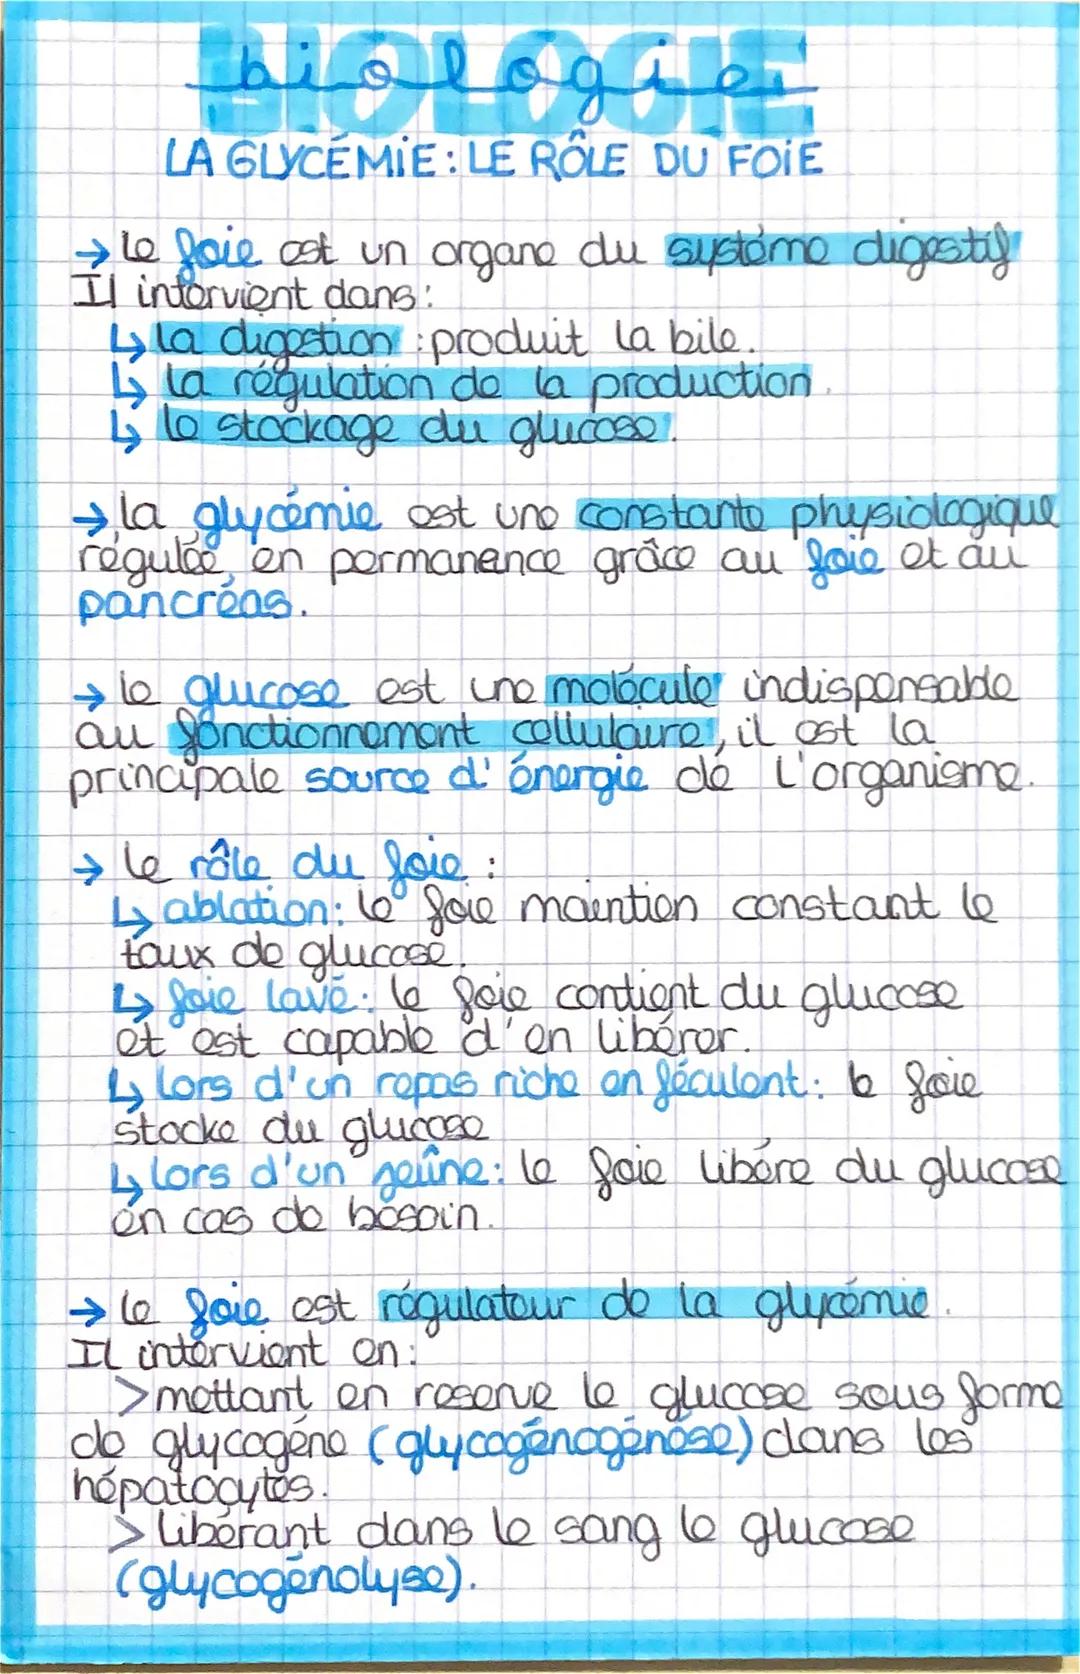 BIOLOGIE
biologie
LA GLYCÉMIE : LE RÔLE DU FOIE
→ le foie est un organe du système digestif
Il intervient dans :
↳ la digestion : produit la bile.
↳ la régulation de la production.
↳ le stockage du glucose.
→ la glycémie est une constante physiologique
régulée en permanence grâce au foie et au
pancréas.
→ le glucose est une molécule indispensable
au fonctionnement cellulaire, il est la
principale source d'énergie de l'organisme.
→ le rôle du foie :
↳ ablation : le foie maintien constant le
taux de glucose.
↳ foie lavé : le foie contient du glucose
et est capable d'en libérer.
↳ lors d'un repas riche en féculent : le foie
stocke du glucose
↳ lors d'un jeûne : le foie libère du glucose
en cas de besoin.
→ le foie est régulateur de la glycémie.
Il intervient en :
> mettant en reserve le glucose sous forme
de glycogène (glycogénogénèse) dans les
hépatocytes.
> libérant dans le sang le glucose
(glycogénolyse).